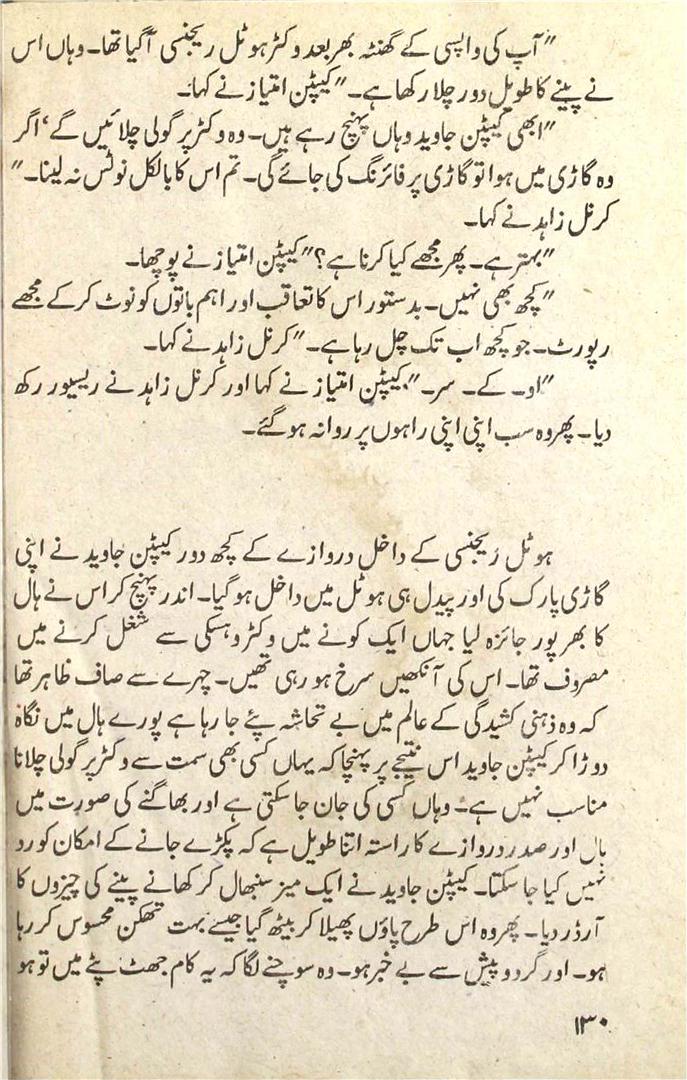 "آپ کی واپسی کے گھنٹہ بھر بعد وکٹر ہوٹل ریجنسی آگیا تھا۔ وہاں اس
نے پینے کا طویل دور چلا رکھا ہے۔" کیپٹن امتیاز نے کہا۔
"ابھی کیپٹن جاوید وہاں پہنچ رہے ہیں۔ وہ وکٹر پر گولی چلائیں گے، اگر
وہ گاڑی میں ہوا تو گاڑی پر فائرنگ کی جائے گی۔ تم اس کا بالکل نوٹس نہ لینا۔"
کرنل زاہد نے کہا۔
"بہتر ہے۔ پھر مجھے کیا کرنا ہے؟" کیپٹن امتیاز نے پوچھا۔
"کچھ بھی نہیں۔ بدستور اس کا تعاقب اور اہم باتوں کو نوٹ کرکے مجھے
رپورٹ۔ جو کچھ اب تک چل رہا ہے۔" کرنل زاہد نے کہا۔
"او۔ کے۔ سر۔" کیپٹن امتیاز نے کہا اور کرنل زاہد نے ریسیور رکھ
دیا۔ پھر وہ سب اپنی اپنی راہوں پر روانہ ہوگئے۔
ہوٹل ریجنسی کے داخل دروازے کے کچھ دور کیپٹن جاوید نے اپنی
گاڑی پارک کی اور پیدل ہی ہوٹل میں داخل ہوگیا۔ اندر پہنچ کر اس نے ہال
کا بھرپور جائزہ لیا جہاں ایک کونے میں وکٹر وہسکی سے شغل کرنے میں
مصروف تھا۔ اس کی آنکھیں سرخ ہو رہی تھیں۔ چہرے سے صاف ظاہر تھا
کہ وہ ذہنی کشیدگی کے عالم میں بے تحاشہ پئے جا رہا ہے پورے ہال میں نگاہ
دوڑا کر کیپٹن جاوید اس نتیجے پر پہنچا کہ یہاں کسی بھی سمت سے وکٹر پر گولی چلانا
مناسب نہیں ہے۔ وہاں کسی کی جان جا سکتی ہے اور بھاگنے کی صورت میں
ہال اور صدر دروازے کا راستہ اتنا طویل ہے کہ پکڑے جانے کے امکان کو رد
نہیں کیا جا سکتا۔ کیپٹن جاوید نے ایک میز سنبھال کر کھانے پینے کی چیزوں کا
آرڈر دیا۔ پھر وہ اس طرح پاؤں پھیلا کر بیٹھ گیا جیسے بہت تھکن محسوس کر رہا
ہو۔ اور گرد و پیش سے بے خبر ہو۔ وہ سوچنے لگا کہ یہ کام جھٹ پٹے میں تو ہو
۱۳۰